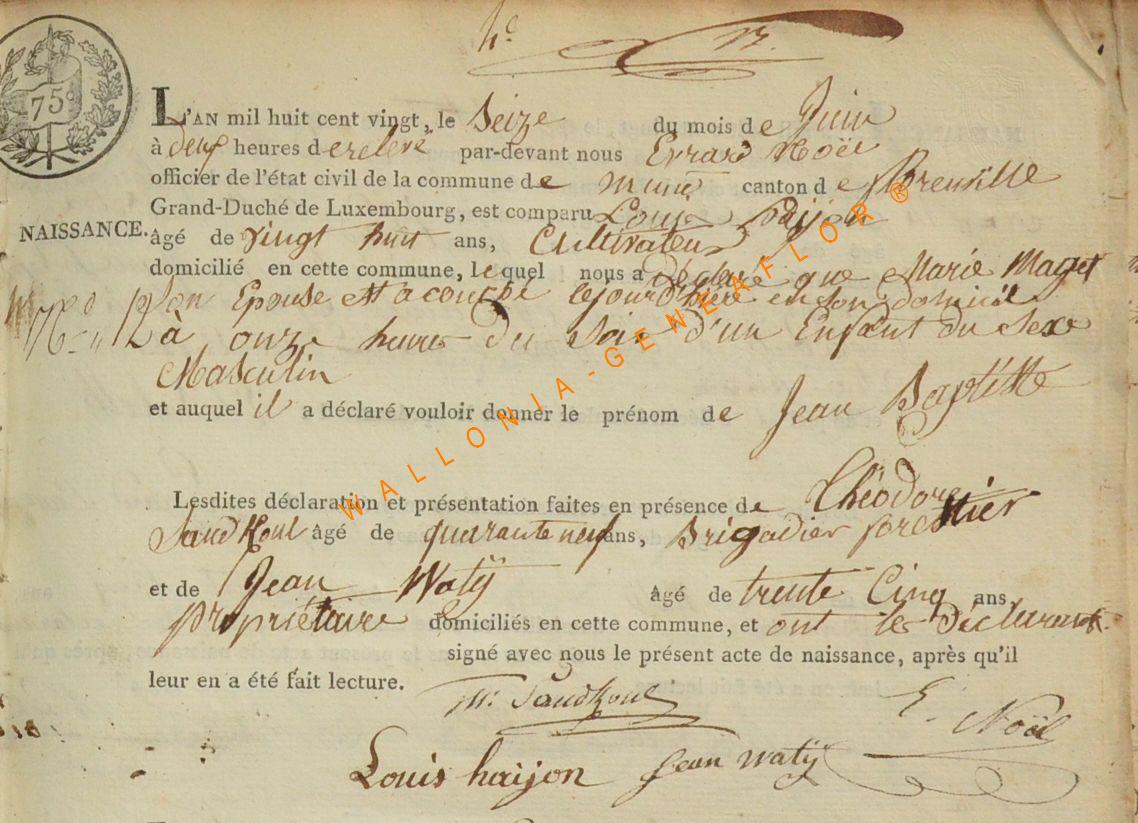 N.º 17.
75 c
L'AN mil huit cent vingt, le Seize du mois de Juin
à deux heures de relevé par-devant nous Evrard Noël
officier de l'état civil de la commune de muno canton de
Grand-Duché de Luxembourg, est comparu Louis haijon
NAISSANCE.
âgé de vingt huit ans, Cultivateur
domicilié en cette commune, lequel nous a déclaré que Marie Maget
son Epouse est acouché lejour d'hière en son domicile
à onze heures du Soir d'un Enfant du Sexe
Masculin
et auquel il a déclaré vouloir donner le prénom de Jean Baptiste
Lesdites déclaration et présentation faites en présence de Théodore
Sandkoul âgé de quarante neuf ans, Brigadier forestier
et de Jean Watÿ âgé de trente Cinq ans,
propriétaire domiciliés en cette commune, et ont les Déclarants
signé avec nous le présent acte de naissance, après qu'il
leur en a été fait lecture.
Sandkoul
E. Noël
Louis haijon Jean watÿ
WALLONIA-GENEAFLOR®